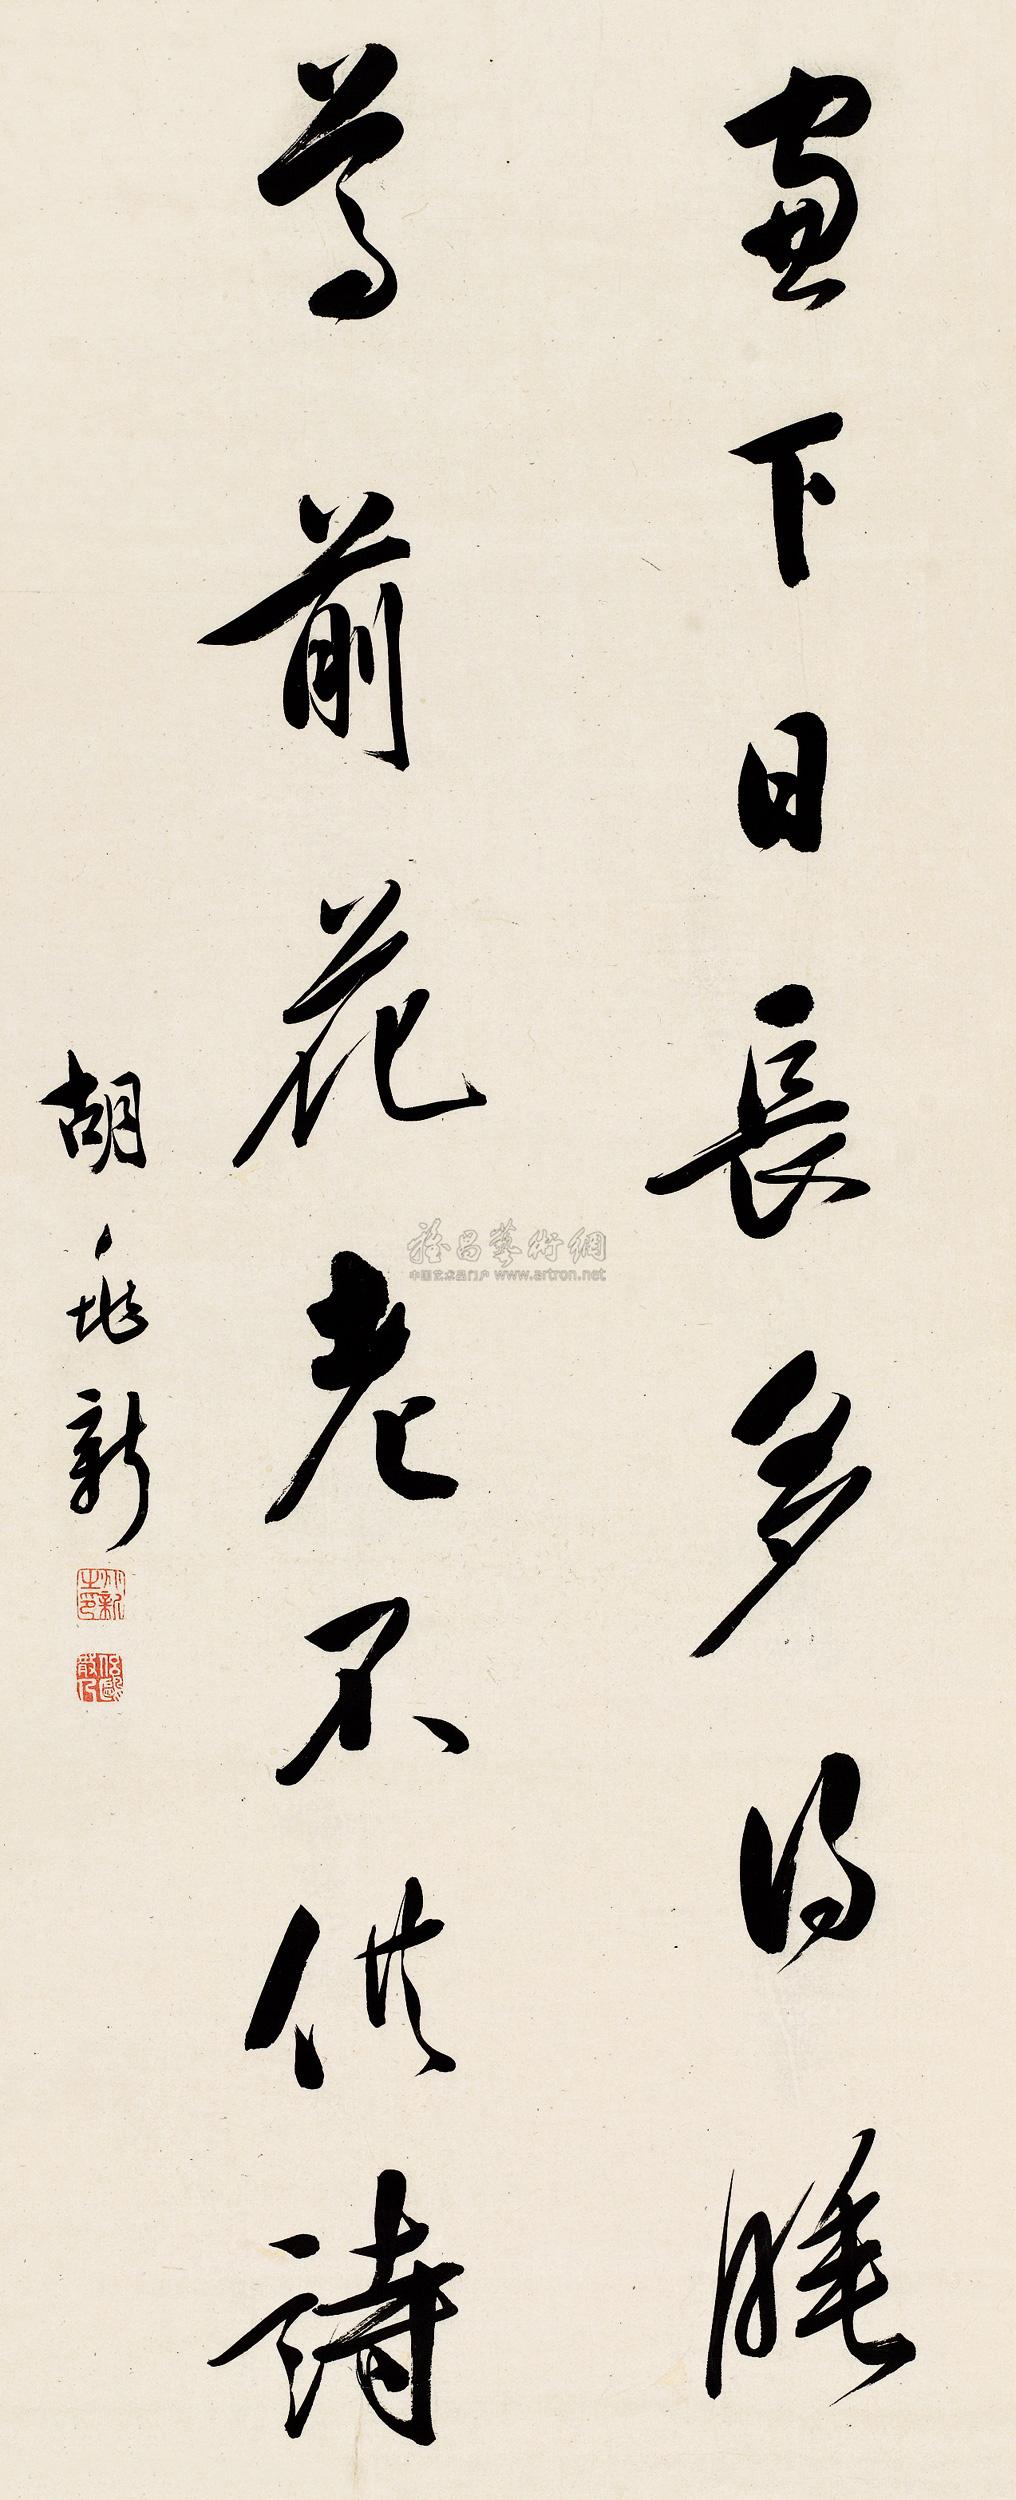 窗下日長多得睡
尊前花老不供詩
胡兆新
兆新之印
雅昌藝術網
中国艺术品门户 www.artron.net